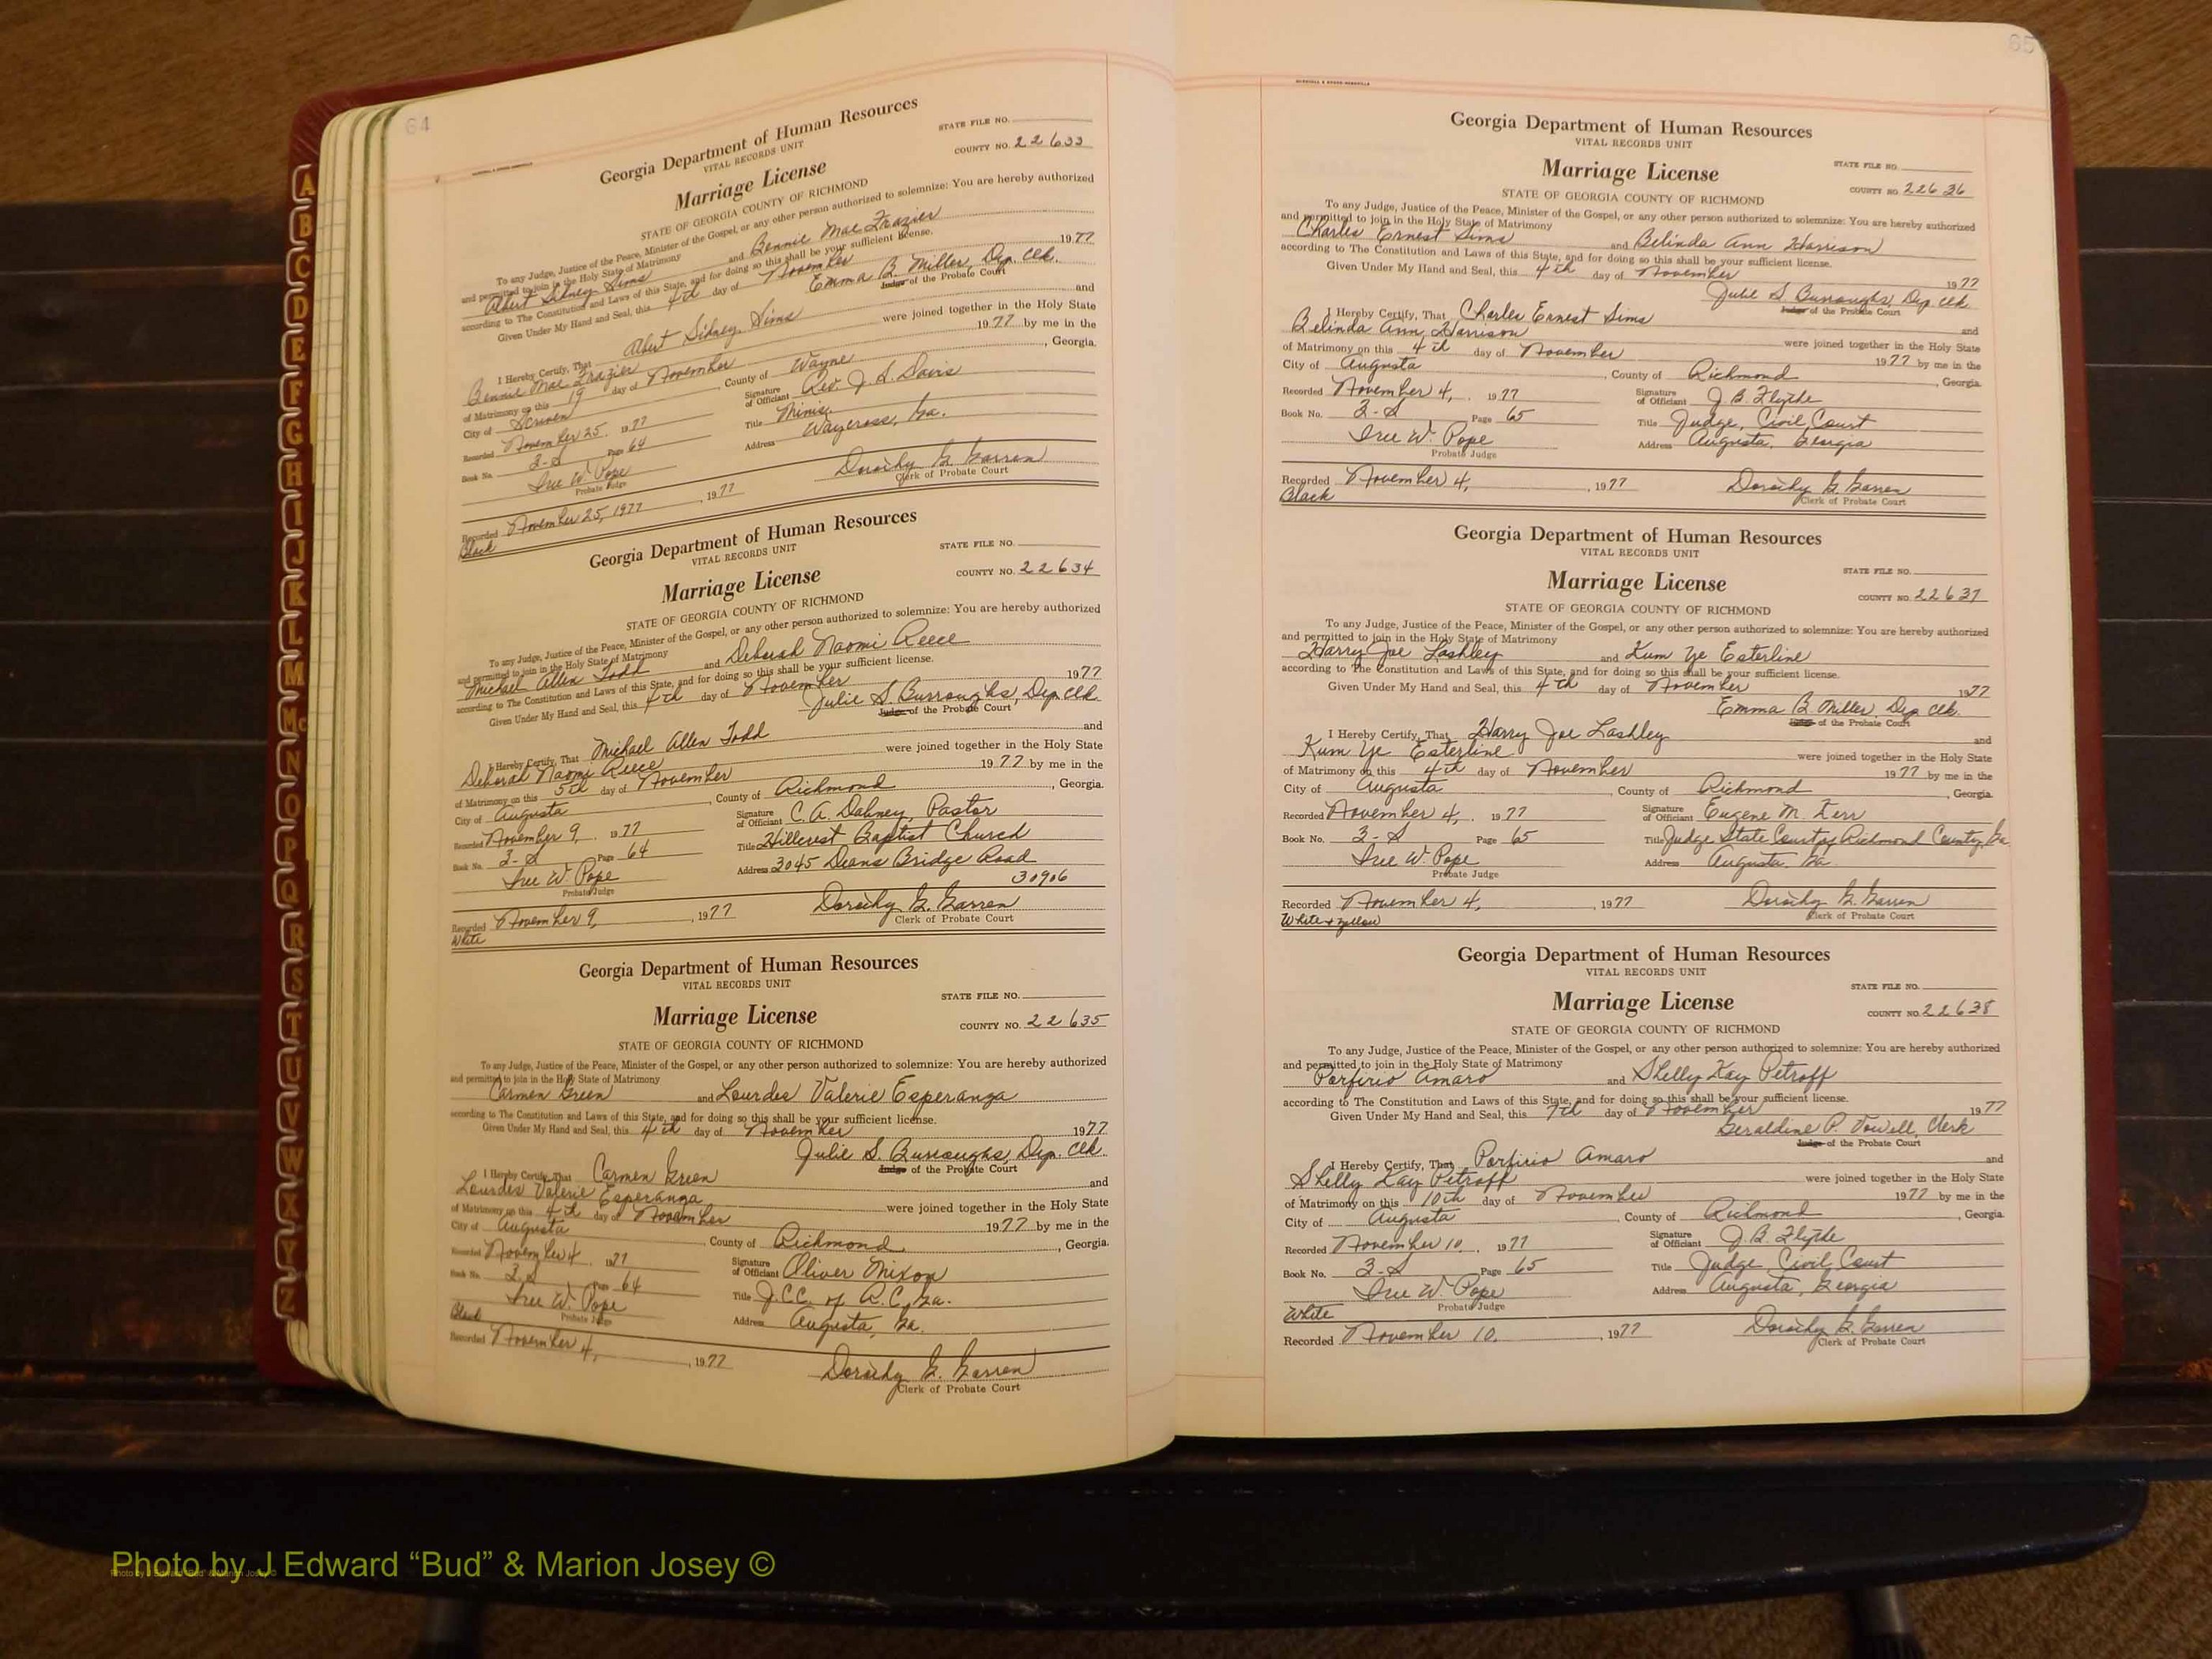 64
Georgia Department of Human Resources
VITAL RECORDS UNIT
STATE FILE NO.
Marriage License
COUNTY NO. 22633
STATE OF GEORGIA COUNTY OF RICHMOND
To any Judge, Justice of the Peace, Minister of the Gospel, or any other person authorized to solemnize: You are hereby authorized
and permitted to join in the Holy State of Matrimony
Albert Sidney Sims and Bennie Mae Frazier
according to The Constitution and Laws of this State, and for doing so this shall be your sufficient license.
Given Under My Hand and Seal, this 4th day of November 1977
Emma B. Miller, Dep. Clk.
Judge of the Probate Court
I Hereby Certify, That Albert Sidney Sims and
Bennie Mae Frazier were joined together in the Holy State
of Matrimony on this 19 day of November 1977 by me in the
City of Screven, County of Wayne, Georgia.
Recorded November 25, 1977 Signature of Officiant Rev. J. L. Davis
Book No. 3-S Page 64 Title Minis.
Iree W. Pope Address Waycross, Ga.
Probate Judge
Dorothy G. Garren
Clerk of Probate Court
Recorded November 25, 1977, 1977
Black
Georgia Department of Human Resources
VITAL RECORDS UNIT
STATE FILE NO.
Marriage License
COUNTY NO. 22634
STATE OF GEORGIA COUNTY OF RICHMOND
To any Judge, Justice of the Peace, Minister of the Gospel, or any other person authorized to solemnize: You are hereby authorized
and permitted to join in the Holy State of Matrimony
Michael Allen Todd and Deborah Naomi Reece
according to The Constitution and Laws of this State, and for doing so this shall be your sufficient license.
Given Under My Hand and Seal, this 4th day of November 1977
Julie S. Burroughs, Dep. Clk.
Judge of the Probate Court
I Hereby Certify, That Michael Allen Todd and
Deborah Naomi Reece were joined together in the Holy State
of Matrimony on this 5th day of November 1977 by me in the
City of Augusta, County of Richmond, Georgia.
Recorded November 9, 1977 Signature of Officiant C. A. Dabney, Pastor
Book No. 3-S Page 64 Title Hillcrest Baptist Church
Iree W. Pope Address 3045 Deans Bridge Road
Probate Judge 30906
Dorothy G. Garren
Recorded November 9, 1977 Clerk of Probate Court
White
Georgia Department of Human Resources
VITAL RECORDS UNIT
STATE FILE NO.
Marriage License
COUNTY NO. 22635
STATE OF GEORGIA COUNTY OF RICHMOND
To any Judge, Justice of the Peace, Minister of the Gospel, or any other person authorized to solemnize: You are hereby authorized
and permitted to join in the Holy State of Matrimony
Carmen Green and Lourdes Valerie Esperanza
according to The Constitution and Laws of this State, and for doing so this shall be your sufficient license.
Given Under My Hand and Seal, this 4th day of November 1977
Julie S. Burroughs, Dep. Clk.
Judge of the Probate Court
I Hereby Certify, That Carmen Green and
Lourdes Valerie Esperanza were joined together in the Holy State
of Matrimony on this 4th day of November 1977 by me in the
City of Augusta County of Richmond, Georgia.
Recorded November 4, 1977 Signature of Officiant Oliver Mixon
Book No. 3-S Page 64 Title J.C.C. of R.C., Ga.
Iree W. Pope Address Augusta, Ga.
Black Probate Judge
Recorded November 4, 1977
Dorothy G. Garren
Clerk of Probate Court
65
Georgia Department of Human Resources
VITAL RECORDS UNIT
STATE FILE NO.
Marriage License
COUNTY NO. 22636
STATE OF GEORGIA COUNTY OF RICHMOND
To any Judge, Justice of the Peace, Minister of the Gospel, or any other person authorized to solemnize: You are hereby authorized
and permitted to join in the Holy State of Matrimony
Charles Ernest Sims and Belinda Ann Harrison
according to The Constitution and Laws of this State, and for doing so this shall be your sufficient license.
Given Under My Hand and Seal, this 4th day of November 1977
Julie S. Burroughs, Dep. Clk.
Judge of the Probate Court
I Hereby Certify, That Charles Ernest Sims and
Belinda Ann Harrison were joined together in the Holy State
of Matrimony on this 4th day of November 1977 by me in the
City of Augusta, County of Richmond, Georgia.
Recorded November 4, 1977 Signature of Officiant J. B. Flythe
Book No. 3-S Page 65 Title Judge, Civil Court
Iree W. Pope Address Augusta, Georgia
Probate Judge
Recorded November 4, 1977 Dorothy G. Garren
Black Clerk of Probate Court
Georgia Department of Human Resources
VITAL RECORDS UNIT
STATE FILE NO.
Marriage License
COUNTY NO. 22637
STATE OF GEORGIA COUNTY OF RICHMOND
To any Judge, Justice of the Peace, Minister of the Gospel, or any other person authorized to solemnize: You are hereby authorized
and permitted to join in the Holy State of Matrimony
Harry Joe Lashley and Kum Ye Esterline
according to The Constitution and Laws of this State, and for doing so this shall be your sufficient license.
Given Under My Hand and Seal, this 4th day of November 1977
Emma B. Miller, Dep Clk.
Judge of the Probate Court
I Hereby Certify, That Harry Joe Lashley and
Kum Ye Esterline were joined together in the Holy State
of Matrimony on this 4th day of November 1977 by me in the
City of Augusta, County of Richmond, Georgia.
Recorded November 4, 1977 Signature of Officiant Eugene M. Kerr
Book No. 3-S Page 65 Title Judge State Court of Richmond County, Ga
Iree W. Pope Address Augusta, Ga
Probate Judge
Recorded November 4, 1977 Dorothy G. Garren
White & yellow Clerk of Probate Court
Georgia Department of Human Resources
VITAL RECORDS UNIT
STATE FILE NO.
Marriage License
COUNTY NO. 22638
STATE OF GEORGIA COUNTY OF RICHMOND
To any Judge, Justice of the Peace, Minister of the Gospel, or any other person authorized to solemnize: You are hereby authorized
and permitted to join in the Holy State of Matrimony
Porfirio Amaro and Shelly Kay Petroff
according to The Constitution and Laws of this State, and for doing so this shall be your sufficient license.
Given Under My Hand and Seal, this 7th day of November 1977
Geraldine P. Powell, Clerk
Judge of the Probate Court
I Hereby Certify, That Porfirio Amaro and
Shelly Kay Petroff were joined together in the Holy State
of Matrimony on this 10th day of November 1977 by me in the
City of Augusta, County of Richmond, Georgia.
Recorded November 10, 1977 Signature of Officiant J. B. Flythe
Book No. 3-S Page 65 Title Judge, Civil Court
Iree W. Pope Address Augusta, Georgia
White Probate Judge
Recorded November 10, 1977 Dorothy G. Garren
Clerk of Probate Court
A
B
C
D
E
F
G
H
I
J
K
L
M
Mc
N
O
P
Q
R
S
T
U
V
W
X
Y
Z
Photo by J Edward “Bud” & Marion Josey ©
Photo by J Edward “Bud” & Marion Josey ©